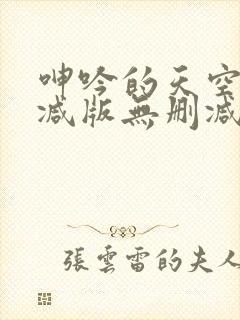 呻吟的天空
减版無删减
張雲雷的夫人